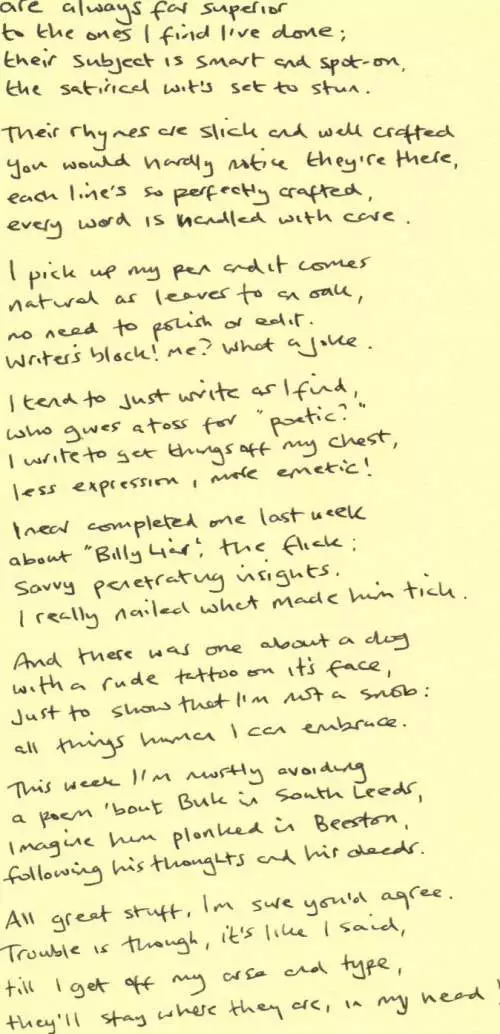 are always far superior
to the ones I find I've done;
their subject is smart and spot-on,
the satirical wit's set to stun.
Their rhymes are slick and well crafted
you would hardly notice they're there,
each line's so perfectly crafted,
every word is handled with care.
I pick up my pen and it comes
natural as leaves to an oak,
no need to polish or edit.
Writer's block! me? What a joke.
I tend to just write as I find,
who gives a toss for "poetic?"
I write to get things off my chest,
less expression, more emetic!
I near completed one last week
about "Billy Liar", the flick;
Savvy penetrating insights.
I really nailed what made him tick.
And there was one about a dog
with a rude tattoo on it's face,
Just to show that I'm not a snob:
all things human I can embrace.
This week I'm mostly avoiding
a poem 'bout Buk in South Leeds,
Imagine him plonked in Beeston,
following his thoughts and his deeds.
All great stuff, I'm sure you'd agree.
Trouble is though, it's like I said,
till I get off my arse and type,
they'll stay where they are, in my head!